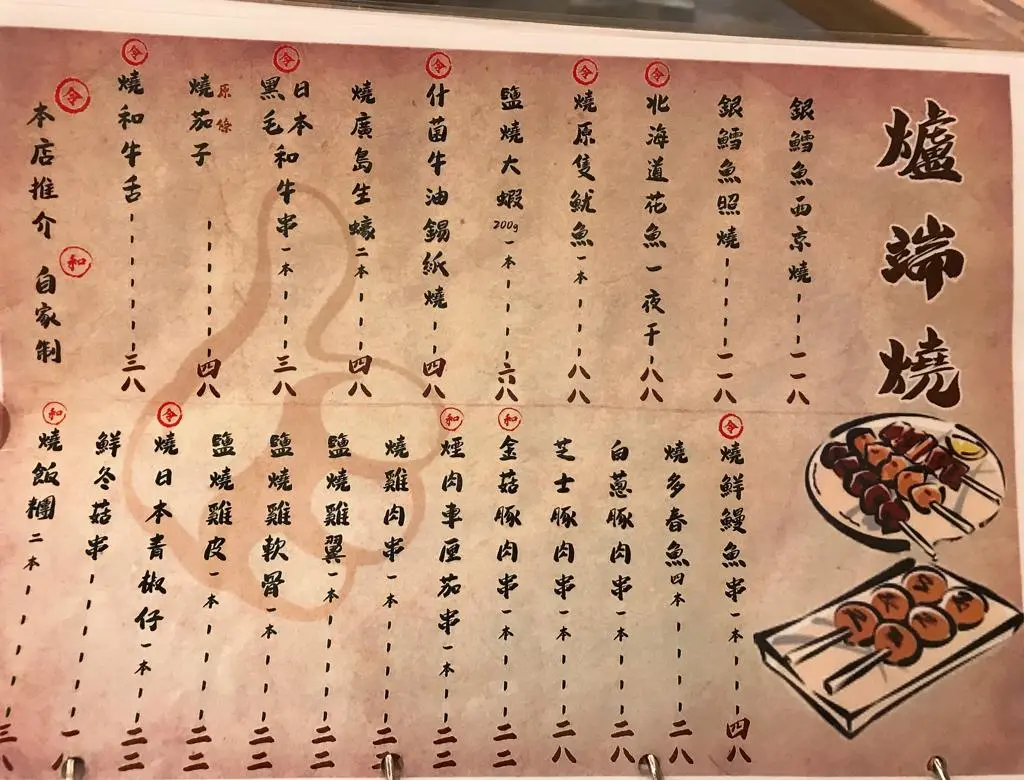 爐端燒
銀鱈魚西京燒 一一八
銀鱈魚照燒 一一八
令 北海道花魚一夜干 八八
令 燒原隻魷魚一本 八八
鹽燒大蝦200g一本 六八
令 什菌牛油錫紙燒 四八
燒廣島生蠔二本 四八
令 日本黑毛和牛串一本 三八
原條燒茄子 四八
令 燒和牛舌 三八
令 本店推介 和 自家制
令 燒鮮鰻魚串一本 四八
燒多春魚四本 二八
白蔥豚肉串一本 二八
芝士豚肉串一本 二八
和 金菇豚肉串一本 二二
和 煙肉車厘茄串一本 二二
燒雞肉串一本 二二
鹽燒雞翼一本 二二
鹽燒雞軟骨一本 二二
鹽燒雞皮一本 二二
令 燒日本青椒仔一本 二二
鮮冬菇串 一八
和 燒飯糰二本